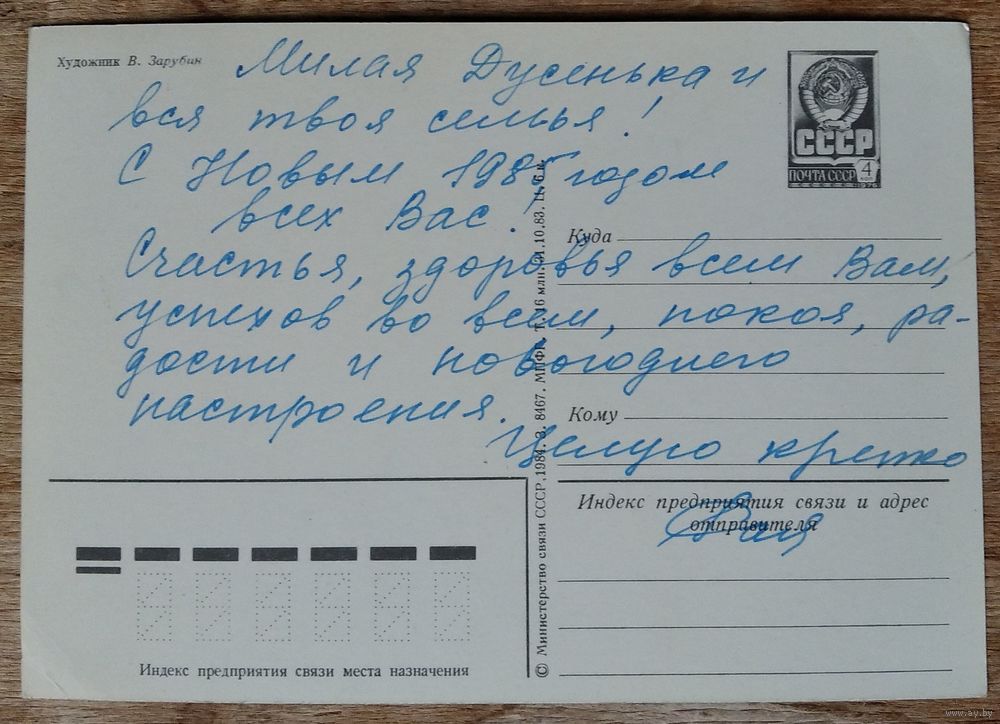 Художник В. Зарубин
Милая Дусенька и
вся твоя семья!
С Новым 1985 годом
всех Вас!
Счастья, здоровья всем Вам,
успехов во всем, покоя, ра-
дости и новогоднего
настроения.
Целую крепко
СССР
ПОЧТА СССР
4
КОП
1976
Куда
Кому
Индекс предприятия связи и адрес
отправителя
© Министерство связи СССР, 1984. З. 8467. МПФГ. Т. 16 млн. 21.10.83. Ц. 6 к.
Индекс предприятия связи места назначения
www.ay.by